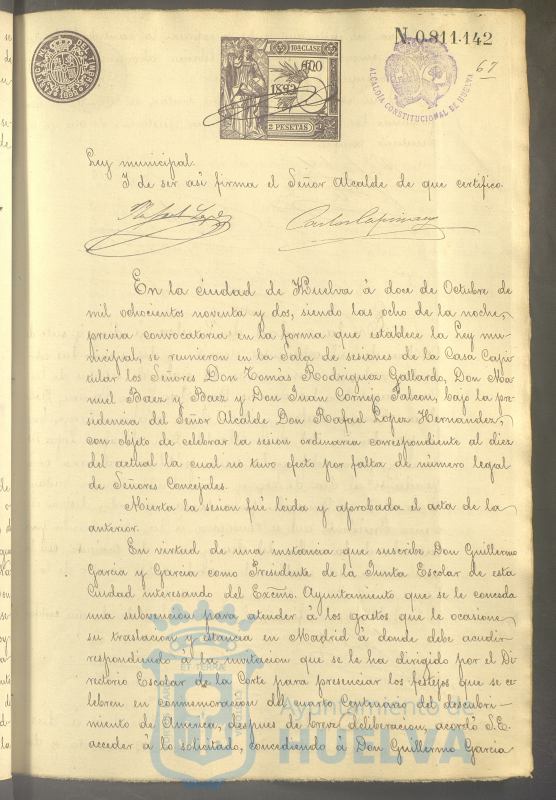 N. 0.911.142
67
10ª CLASE
1892
2 PESETAS
ALCALDÍA CONSTITUCIONAL DE HUELVA
Ley municipal.
I de ser asi firma el Señor Alcalde de que certifico.
Rafael Lopez
En la ciudad de Huelva á doce de Octubre de
mil ochocientos noventa y dos, siendo las ocho de la noche,
previa convocatoria en la forma que establece la Ley mu-
nicipal, se reunieron en la Sala de sesiones de la Casa Capi-
tular los Señores Don Tomás Rodriguez Gallardo, Don Ma-
nuel Baez y Baez y Don Juan Cornejo Falcon, bajo la pre-
sidencia del Señor Alcalde Don Rafael Lopez Hernandez,
con objeto de celebrar la sesion ordinaria correspondiente al diez
del actual la cual no tuvo efecto por falta de número legal
de Señores Concejales.
Abierta la sesion fué leida y aprobada el acta de la
anterior.
En virtud de una instancia que suscribe Don Guillermo
Garcia y Garcia como Presidente de la Junta Escolar de esta
Ciudad interesando del Excmo. Ayuntamiento que se le conceda
una subvencion para atender á los gastos que le ocasione
su traslacion y estancia en Madrid á donde debe acudir
respondiendo á la invitacion que se le ha dirigido por el Di-
rectorio Escolar de la Corte para presenciar los festejos que se ce-
lebren en conmemoracion del cuarto Centenario del descubri-
miento de America, despues de breve deliberacion, acordó S.E.
acceder á lo solicitado, concediendo á Don Guillermo Garcia
Ayuntamiento de
HUELVA